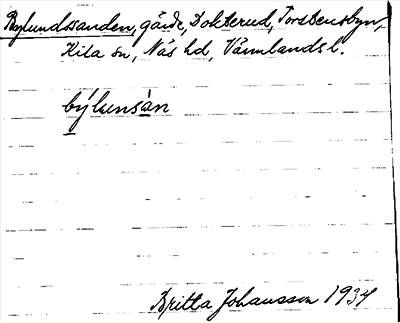 Bylundssanden, gärde, Dokterud, Torstensbyn,
Kila sn, Näs hd, Värmlands l.
býlunsàn
Britta Johansson 1934